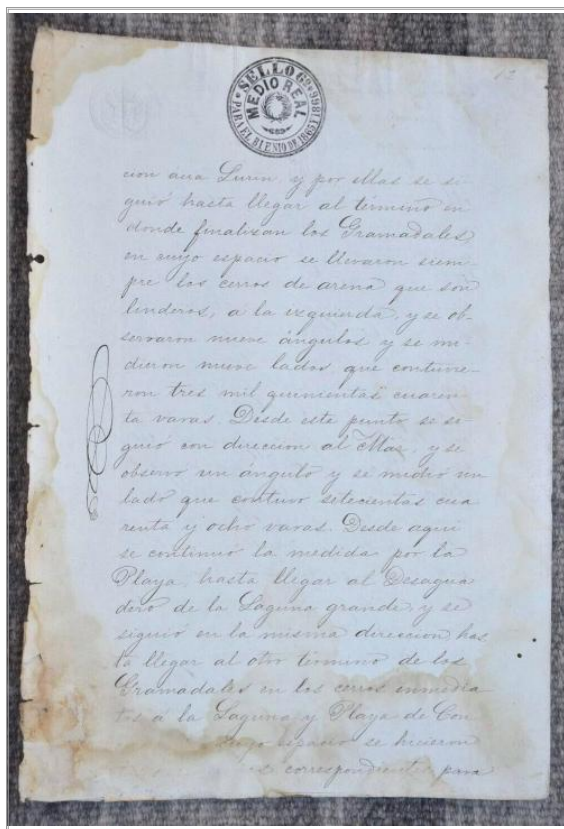 12
SELLO 6º
MEDIO REAL
PARA EL BIENIO DE 1865 Y 1866
cion acia Lurin y por ellas se si-
guió hasta llegar al término en
donde finalizan los Gramadales,
en cuyo espacio se llevaron siem-
pre los cerros de arena que son
linderos, á la izquierda, y se ob-
servaron nueve ángulos y se mi-
dieron nueve lados que contuvie-
ron tres mil quinientas cuaren
ta varas. Desde este punto se si-
guió con direccion al Mar, y se
observó un ángulo y se midió un
lado que contuvo setecientas cua
renta y ocho varas. Desde aqui
se continuó la medida por la
Playa hasta llegar al Desagua
dero de la Laguna grande y se
siguió en la misma direccion has
ta llegar al otro término de los
Gramadales en los cerros inmedia
tos á la Laguna y Playa de Con
cuyo espacio se hicieron
correspondientes para